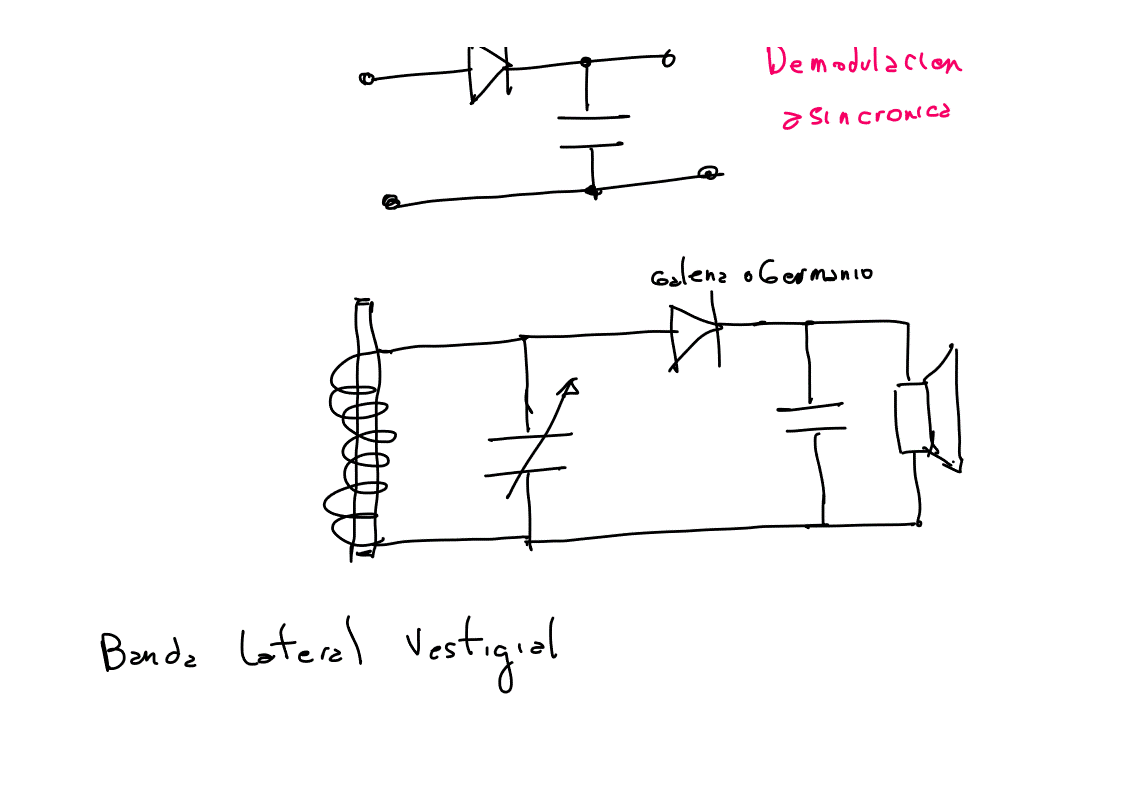 Demodulacion
asincronica
Galena o Germanio
Banda Lateral Vestigial